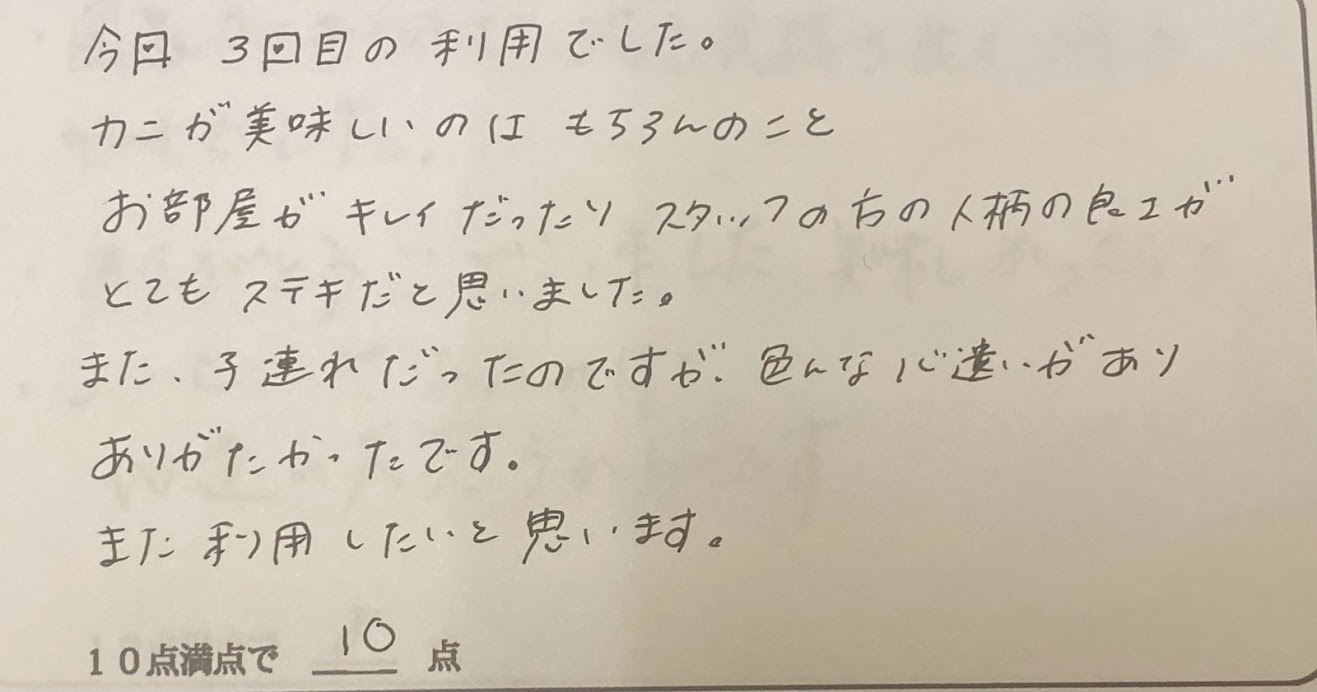 今回 3回目の 利用でした。
カニが美味しいのは もちろんのこと
お部屋が キレイだったり スタッフの方の人柄の良エが…
とても ステキだと思いました。
また、子連れだったのですが、色んな心遣いがあり
ありがたかったです。
また 利用したいと思います。
10点満点で 10 点